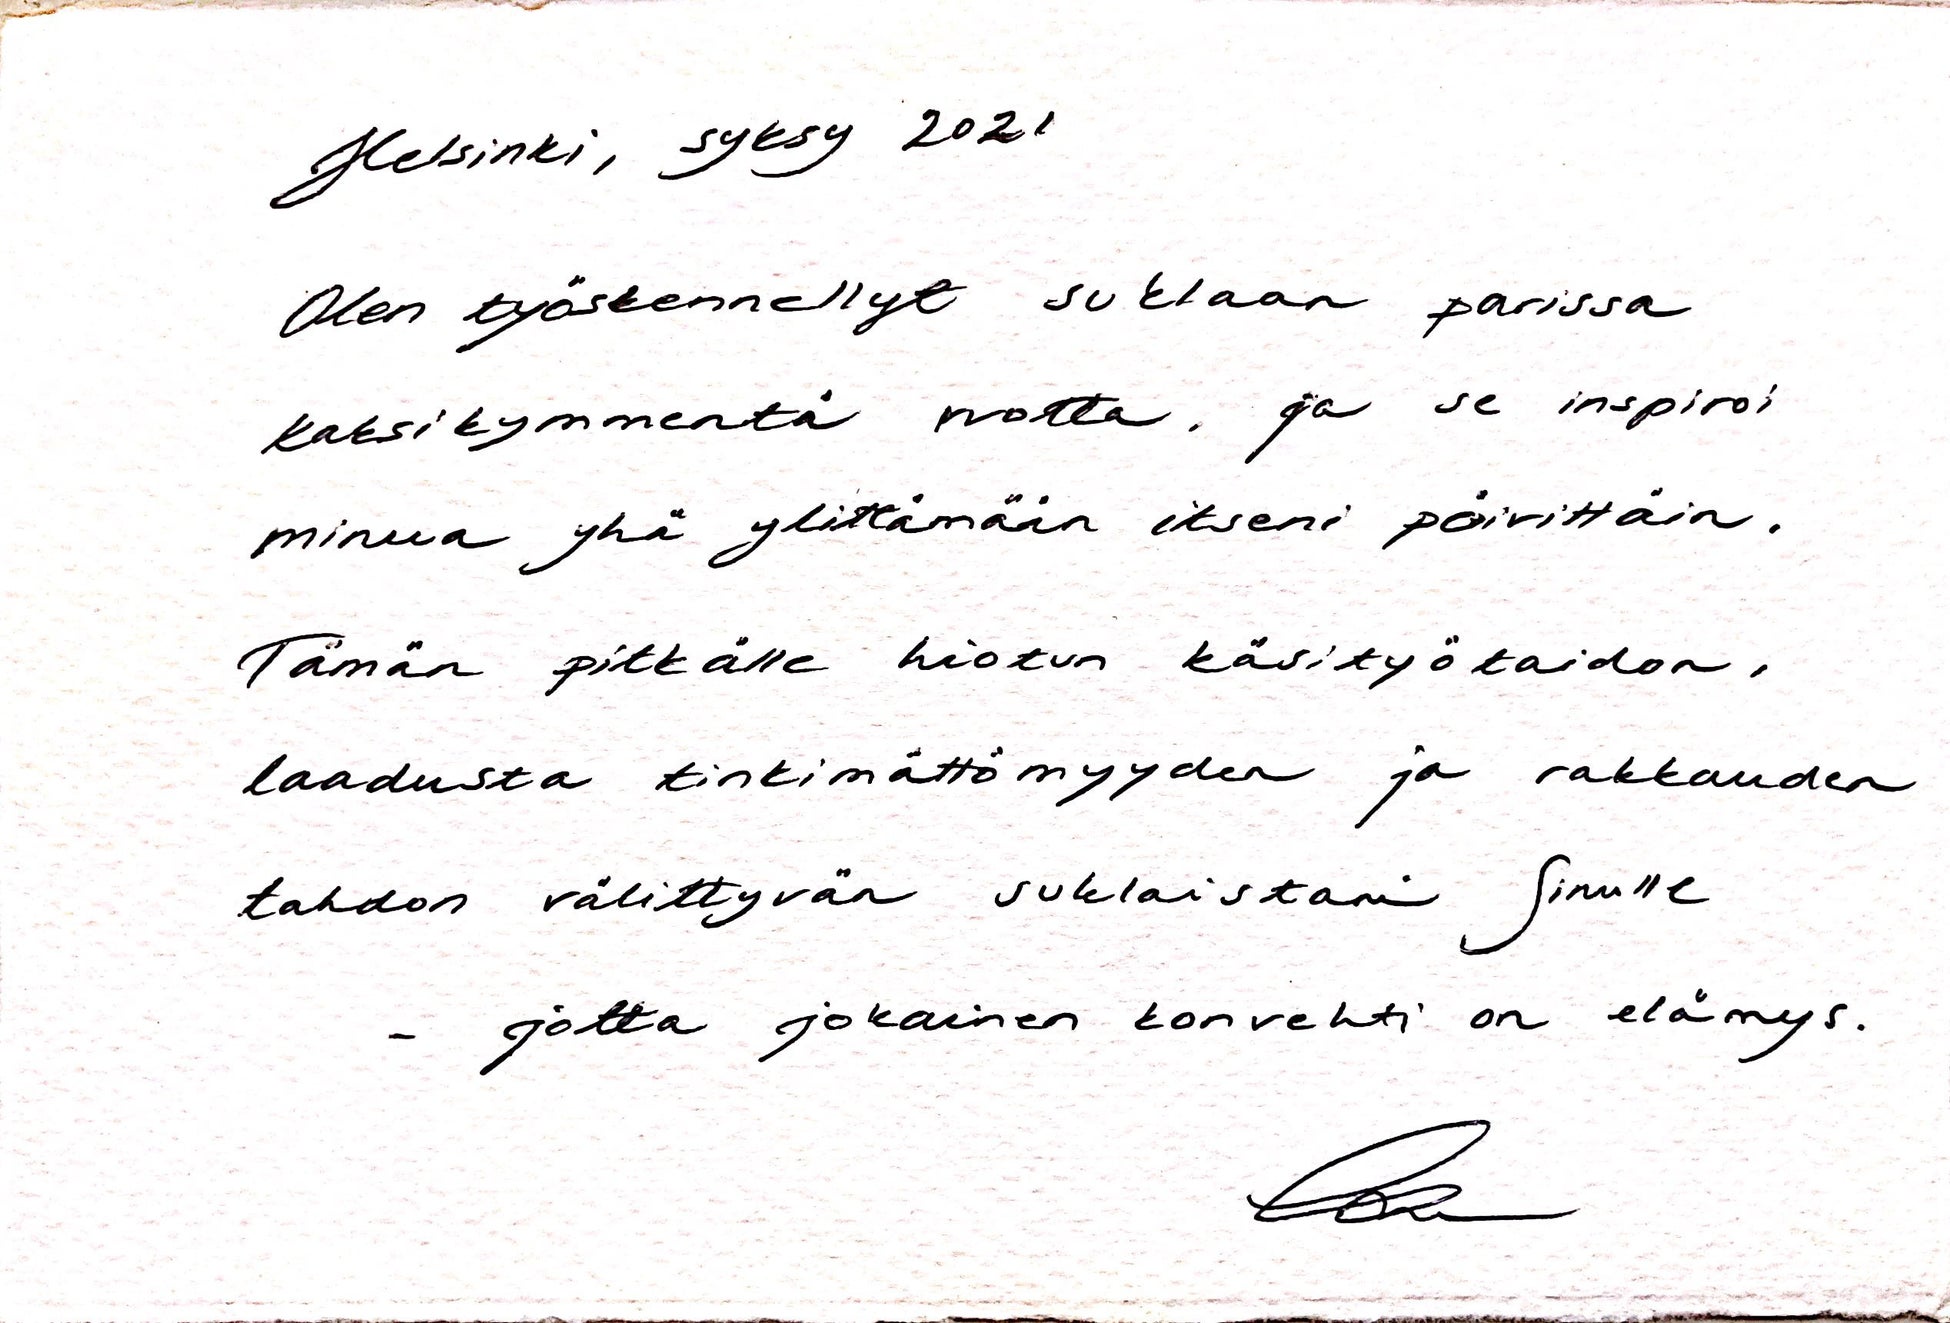 Helsinki, syksy 2021
Olen työskennellyt suklaan parissa
kaksikymmentä vuotta, ja se inspiroi
minua yhä ylittämään itseni päivittäin.
Tämän pitkälle hiotun käsityötaidon,
laadusta tinkimättömyyden ja rakkauden
tahdon välittyvän suklaistani Sinulle
- jotta jokainen konvehti on elämys.